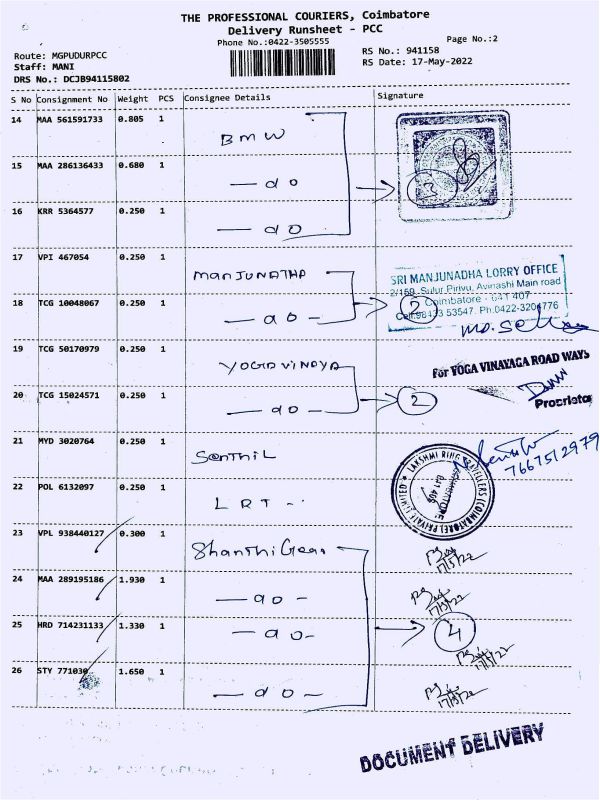 THE PROFESSIONAL COURIERS, Coimbatore
Delivery Runsheet - PCC
Phone No.:0422-3505555
Page No.:2
Route: MGPUDURPCC
RS No.: 941158
Staff: MANI
RS Date: 17-May-2022
DRS No.: DCJB94115802
S No Consignment No Weight PCS Consignee Details Signature
14 MAA 561591733 0.805 1 BMW
15 MAA 286136433 0.680 1 — do
3
16 KRR 5364577 0.250 1 — do
17 VPI 467054 0.250 1 manJUNATHA
SRI MANJUNADHA LORRY OFFICE
2/159, Sulur Pirivu, Avinashi Main road
Coimbatore - 641 407
Cell:98433 53547. Ph:0422-3204776
18 TCG 10048067 0.250 1 — do —
2
19 TCG 50170979 0.250 1 YOGAVINAYA
For YOGA VINAYAGA ROAD WAYS
Proprietor
20 TCG 15024571 0.250 1 — do —
2
21 MYD 3020764 0.250 1 Senthil
7667512979
22 POL 6132097 0.250 1 LRT --
LAKSHMI RING TRAVELLERS (COIMBATORE) PRIVATE LIMITED
COIMBATORE
641 406
23 VPL 938440127 0.300 1 Shanthi Gear
17/5/22
24 MAA 289195186 1.930 1 — do —
17/5/22
25 HRD 714231133 1.330 1 — do —
4
17/5/22
26 STY 771030 1.650 1 — do —
17/5/22
DOCUMENT DELIVERY